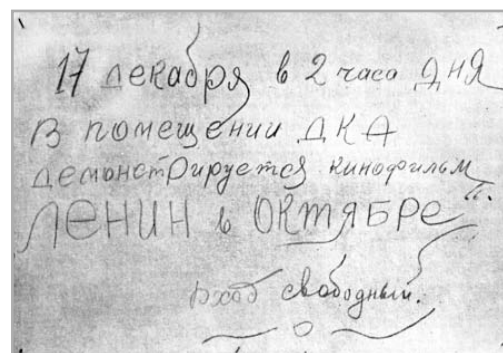 17 декабря в 2 часа дня
в помещении ДКА
демонстрируется кинофильм
ЛЕНИН в ОКТЯБРЕ".
Вход свободный.